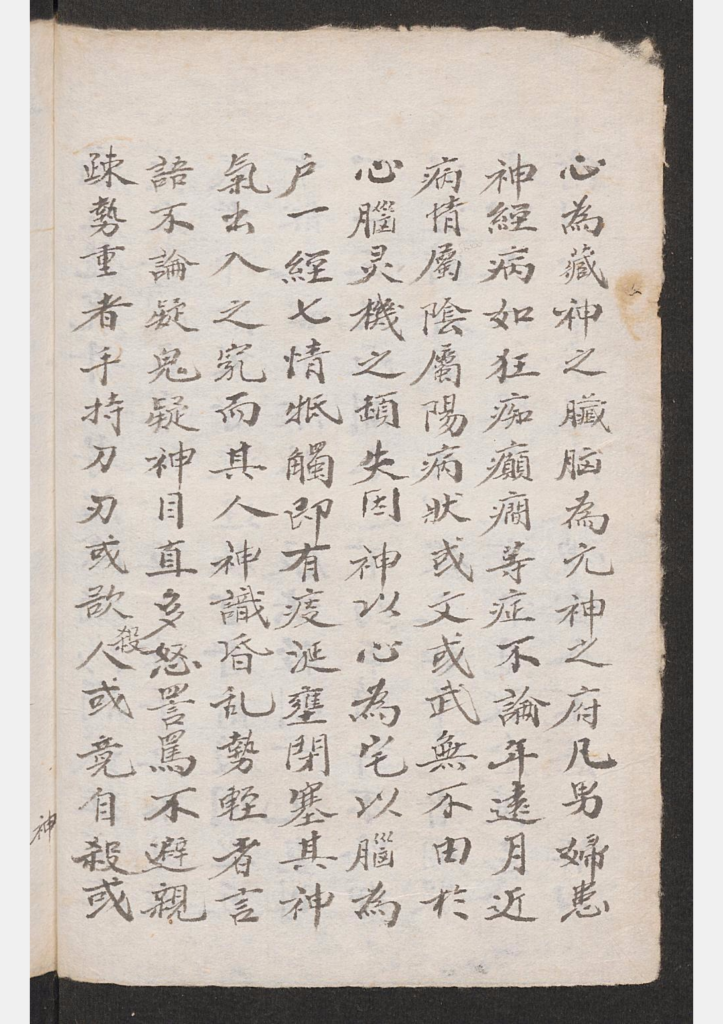 心為藏神之臟脳為元神之府凡男婦患
神經病如狂痴癲癎等症不論年遠月近
病情屬陰屬陽病狀或文或武無不由於
心腦灵機之頓失因神以心為宅以腦為
户一經七情牴觸即有痰涎壅閉塞其神
氣出入之竅而其人神識昏乱勢輕者言
語不論疑鬼疑神目直多怒詈罵不避親
疎勢重者手持刀刃或欲殺人或竟自殺或
神